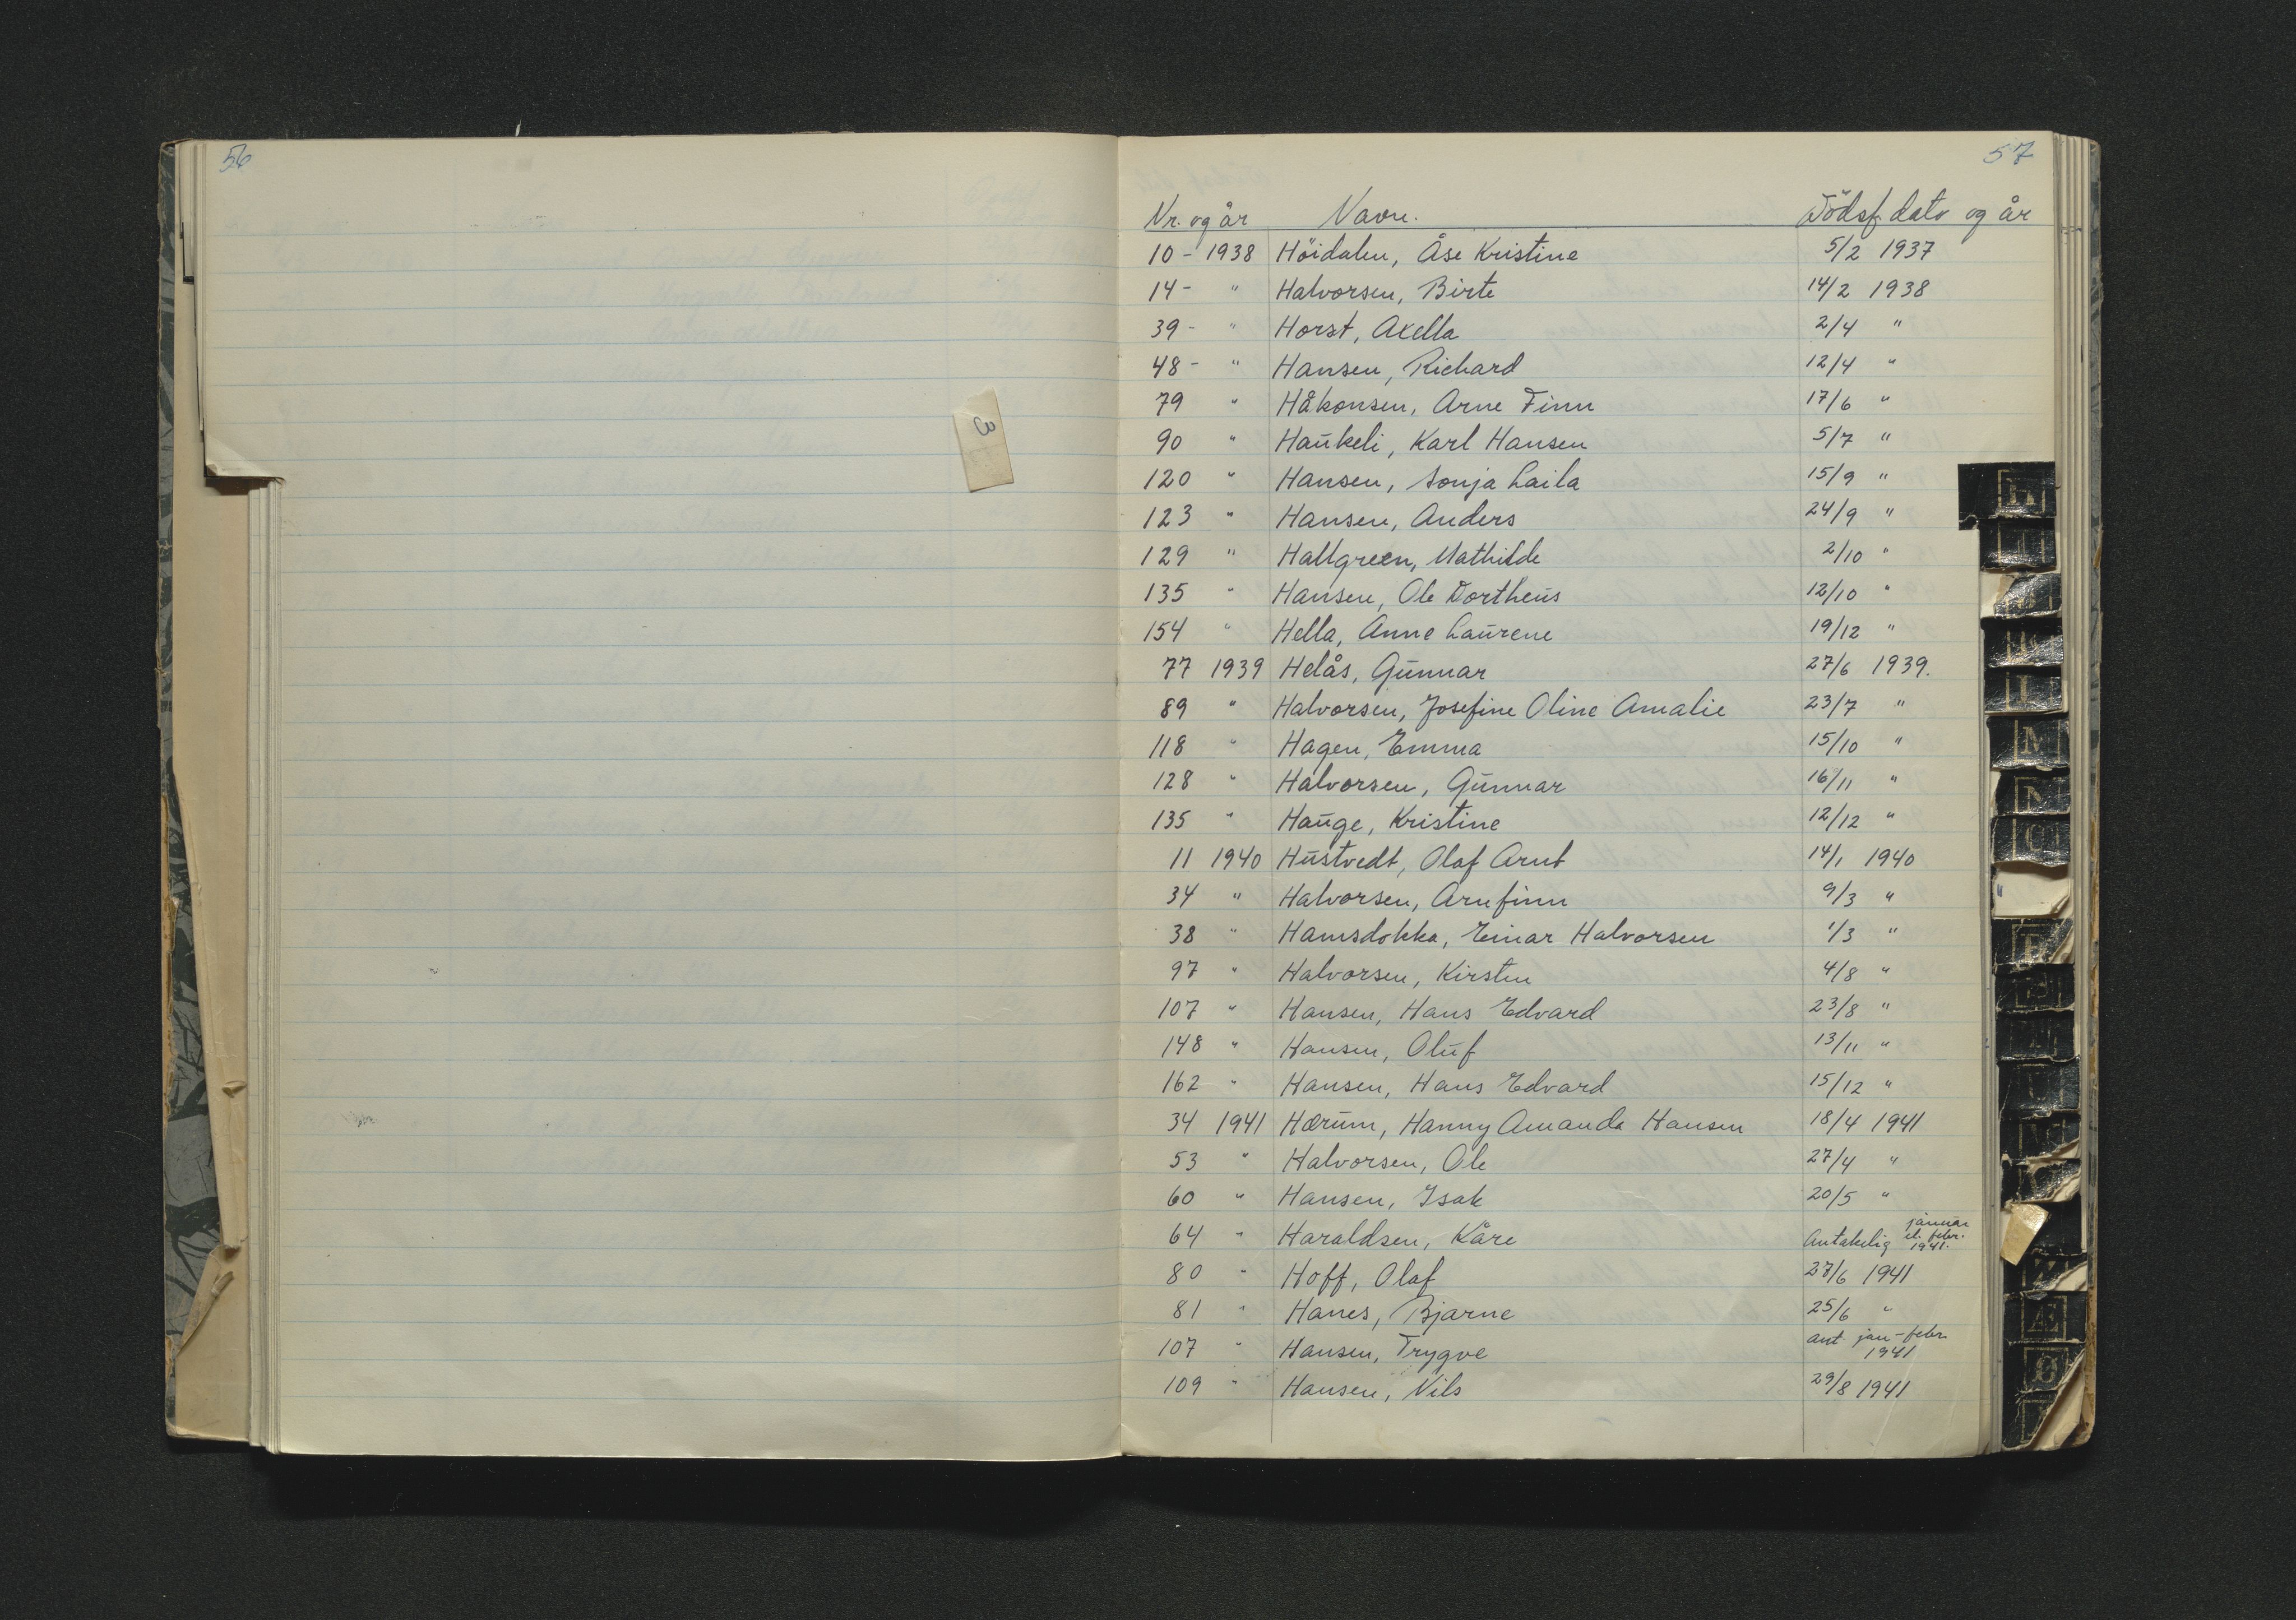 56
57
3
Nr. og år Navn. Dödsf. dato og år
10 - 1938 Höidalen, Åse Kristine 5/2 1937
14 - " Halvorsen, Birte 14/2 1938
39 - " Horst, Axella 2/4 "
48 - " Hansen, Richard 12/4 "
79 " Håkonsen, Arne Finn 17/6 "
90 " Haukeli, Karl Hansen 5/7 "
120 " Hansen, Sonja Laila 15/9 "
123 " Hansen, Anders 24/9 "
129 " Hallgreen, Mathilde 2/10 "
135 " Hansen, Ole Dortheus 12/10 "
154 " Hella, Anne Laurene 19/12 "
77 1939 Helås, Gunnar 27/6 1939.
89 " Halvorsen, Josefine Oline Amalie 23/7 "
118 " Hagen, Emma 15/10 "
128 " Halvorsen, Gunnar 16/11 "
135 " Hauge, Kristine 12/12 "
11 1940 Hustvedt, Olaf Arnt 14/1 1940
34 " Halvorsen, Arnfinn 9/3 "
38 " Hamsdokka, Einar Halvorsen 1/3 "
97 " Halvorsen, Kirsten 4/8 "
107 " Hansen, Hans Edvard 23/8 "
148 " Hansen, Oluf 13/11 "
162 " Hansen, Hans Edvard 15/12 "
34 1941 Hærum, Hanny Amanda Hansen 18/4 1941
53 " Halvorsen, Ole 27/4 "
60 " Hansen, Isak 20/5 "
64 " Haraldsen, Kåre Antakelig januar el. febr. 1941.
80 " Hoff, Olaf 27/6 1941
81 " Hanes, Bjarne 25/6 "
107 " Hansen, Trygve ant jan - febr 1941
109 " Hansen, Nils 29/8 1941
H
L
M
N
Æ
Ø